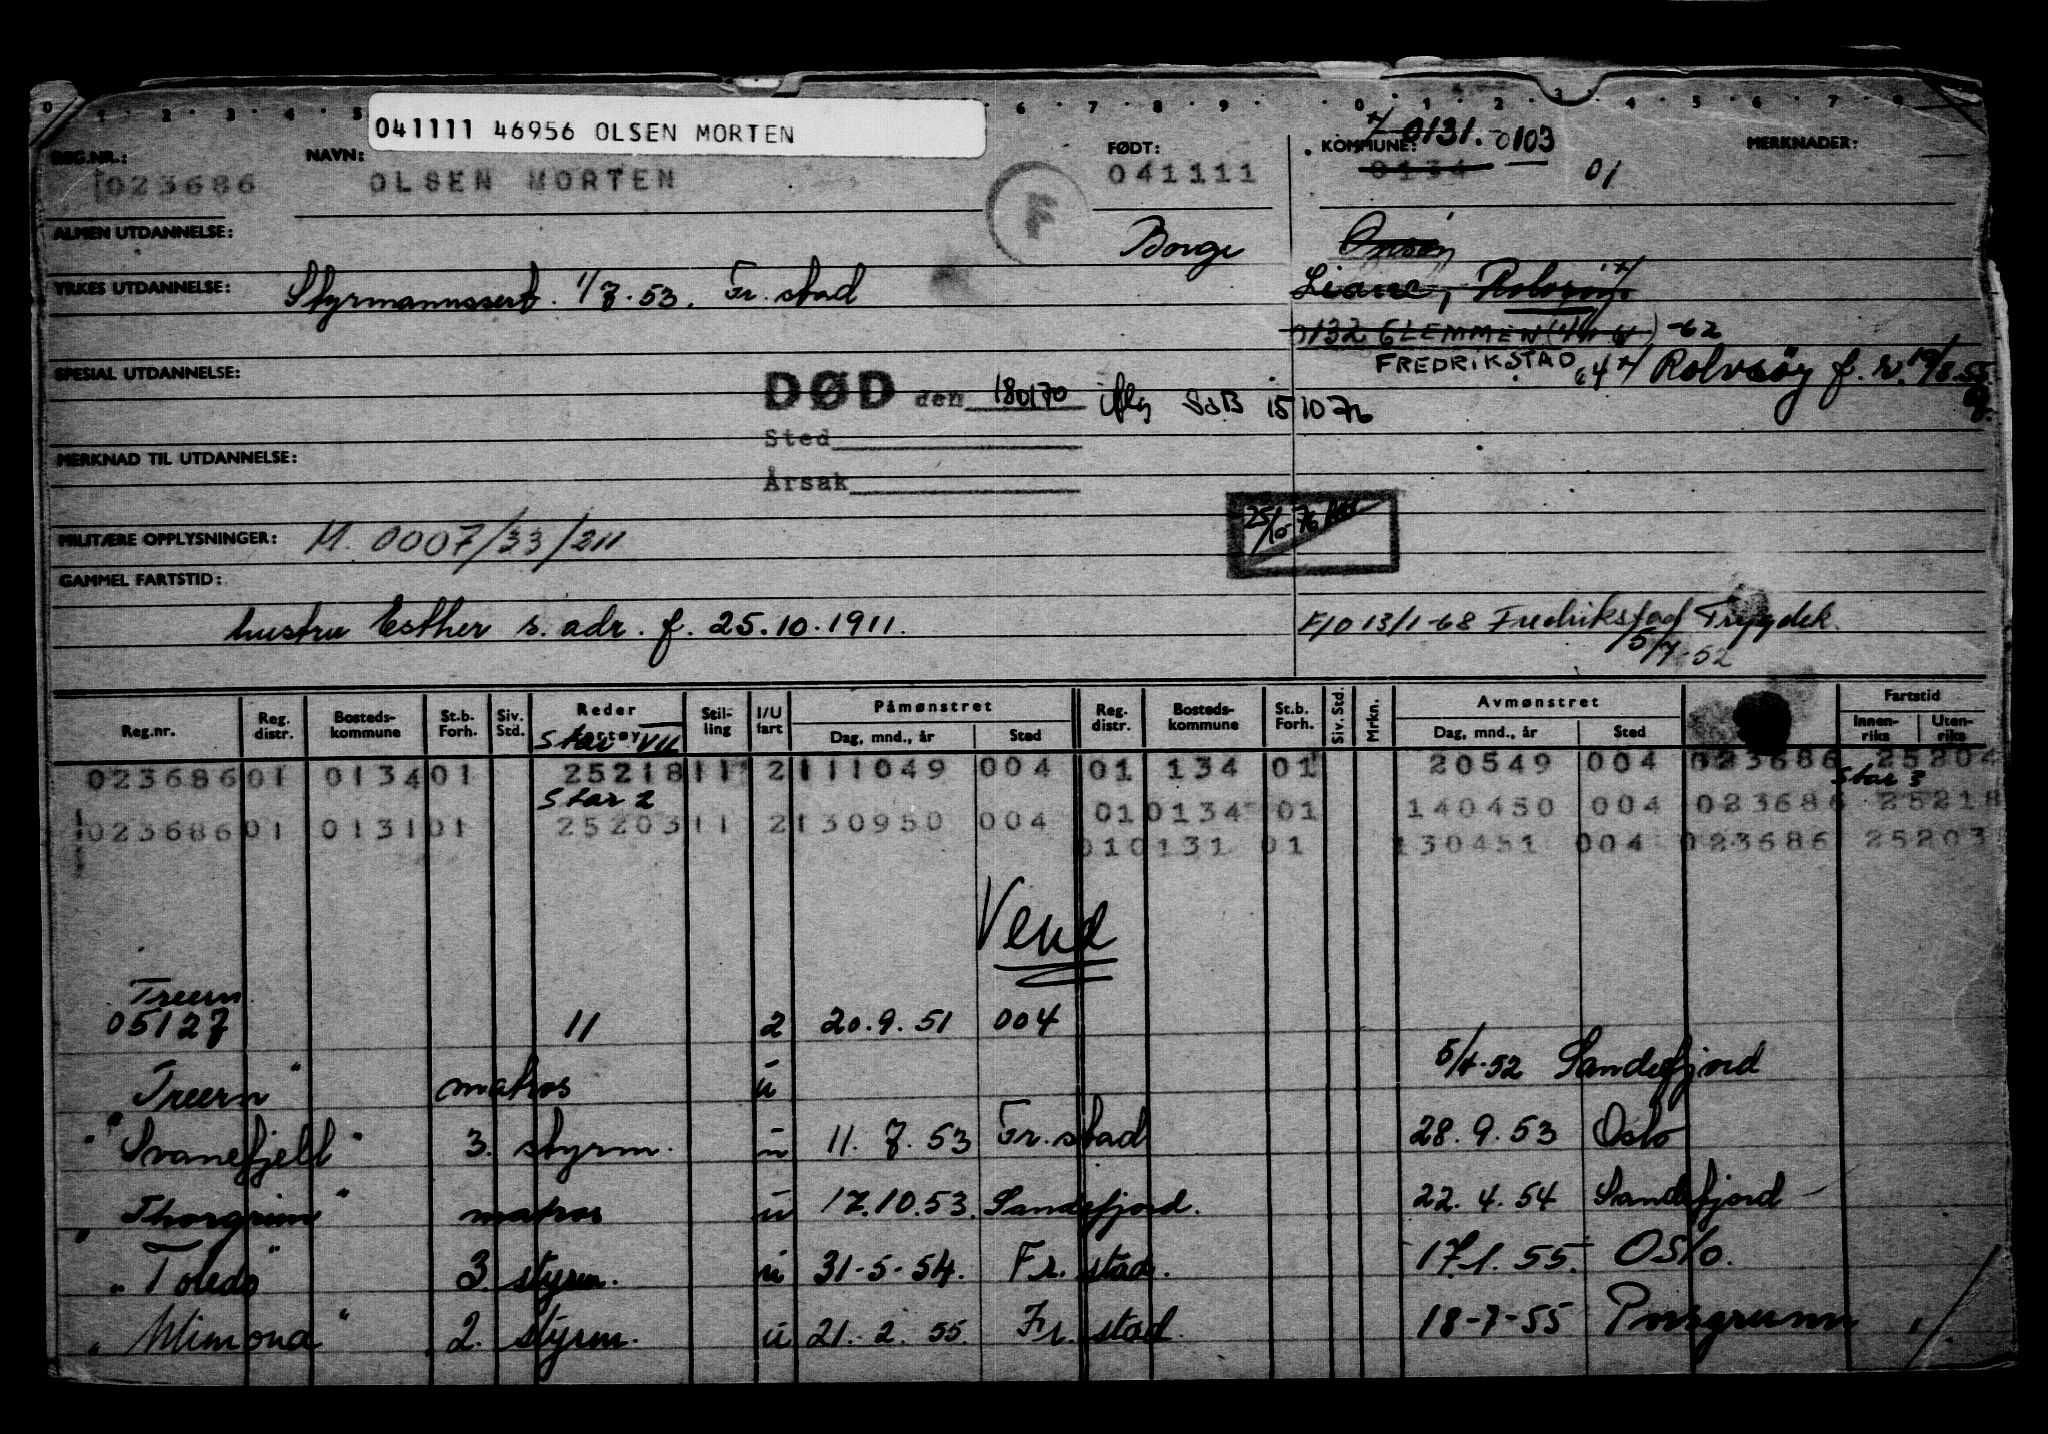 041111 46956 OLSEN MORTEN
REG.NR.: NAVN: FØDT: KOMMUNE: 0131. 0103 MERKNADER:
023686 OLSEN MORTEN F 041111 0134 01
ALMEN UTDANNELSE: Borge Onsøy
YRKES UTDANNELSE: Styrmannssert. 1/7.53. Fr.stad Liane, Rolvsøy.
0132 GLEMMEN -62
SPESIAL UTDANNELSE: FREDRIKSTAD Rolvsøy f. r. 19/8.55.
DØD den 180170 iflg SSB 15 10 76
Sted
MERKNAD TIL UTDANNELSE:
Årsak
25/10 76
MILITÆRE OPPLYSNINGER: M. 0007/33/211
GAMMEL FARTSTID:
hustru Esther s. adr. f. 25.10.1911. F/O 13/1-68 Fredrikstad Trygdek.
15/7-52
Reg.nr. Reg. distr. Bosteds-kommune St.b. Forh. Siv. Std. Reder Stil-ling I/U fart Påmønstret Reg. distr. Bosteds-kommune St.b. Forh. Siv. Std. Mrkn. Avmønstret Fartstid
Star VII Dag, mnd., år Sted Dag, mnd., år Sted Innen-riks Uten-riks
023686 01 0134 01 25218 11 2 111049 004 01 134 01 20549 004 023686 25204
Star 2 Star 3
010134 01 140450 004 023686 25218
023686 01 0131 01 25203 11 2 130950 004
010131 01 130451 004 023686 25203
Vend
Treern
05127 11 2 20.9.51 004
Treern" matros u 5/4.52 Sandefjord
"Svanefjell" 3. styrm. u 11.7.53 Fr.stad 28.9.53 Oslo
"Thorgrim" matros u 17.10.53. Sandefjord. 22.4.54 Sandefjord
"Toledo" 3. styrm. u 31-5-54. Fr. stad. 17.1.55. Oslo.
"Mimona" 2. styrm. u 21.2.55. Fr. stad. 18-7-55 Porsgrunn